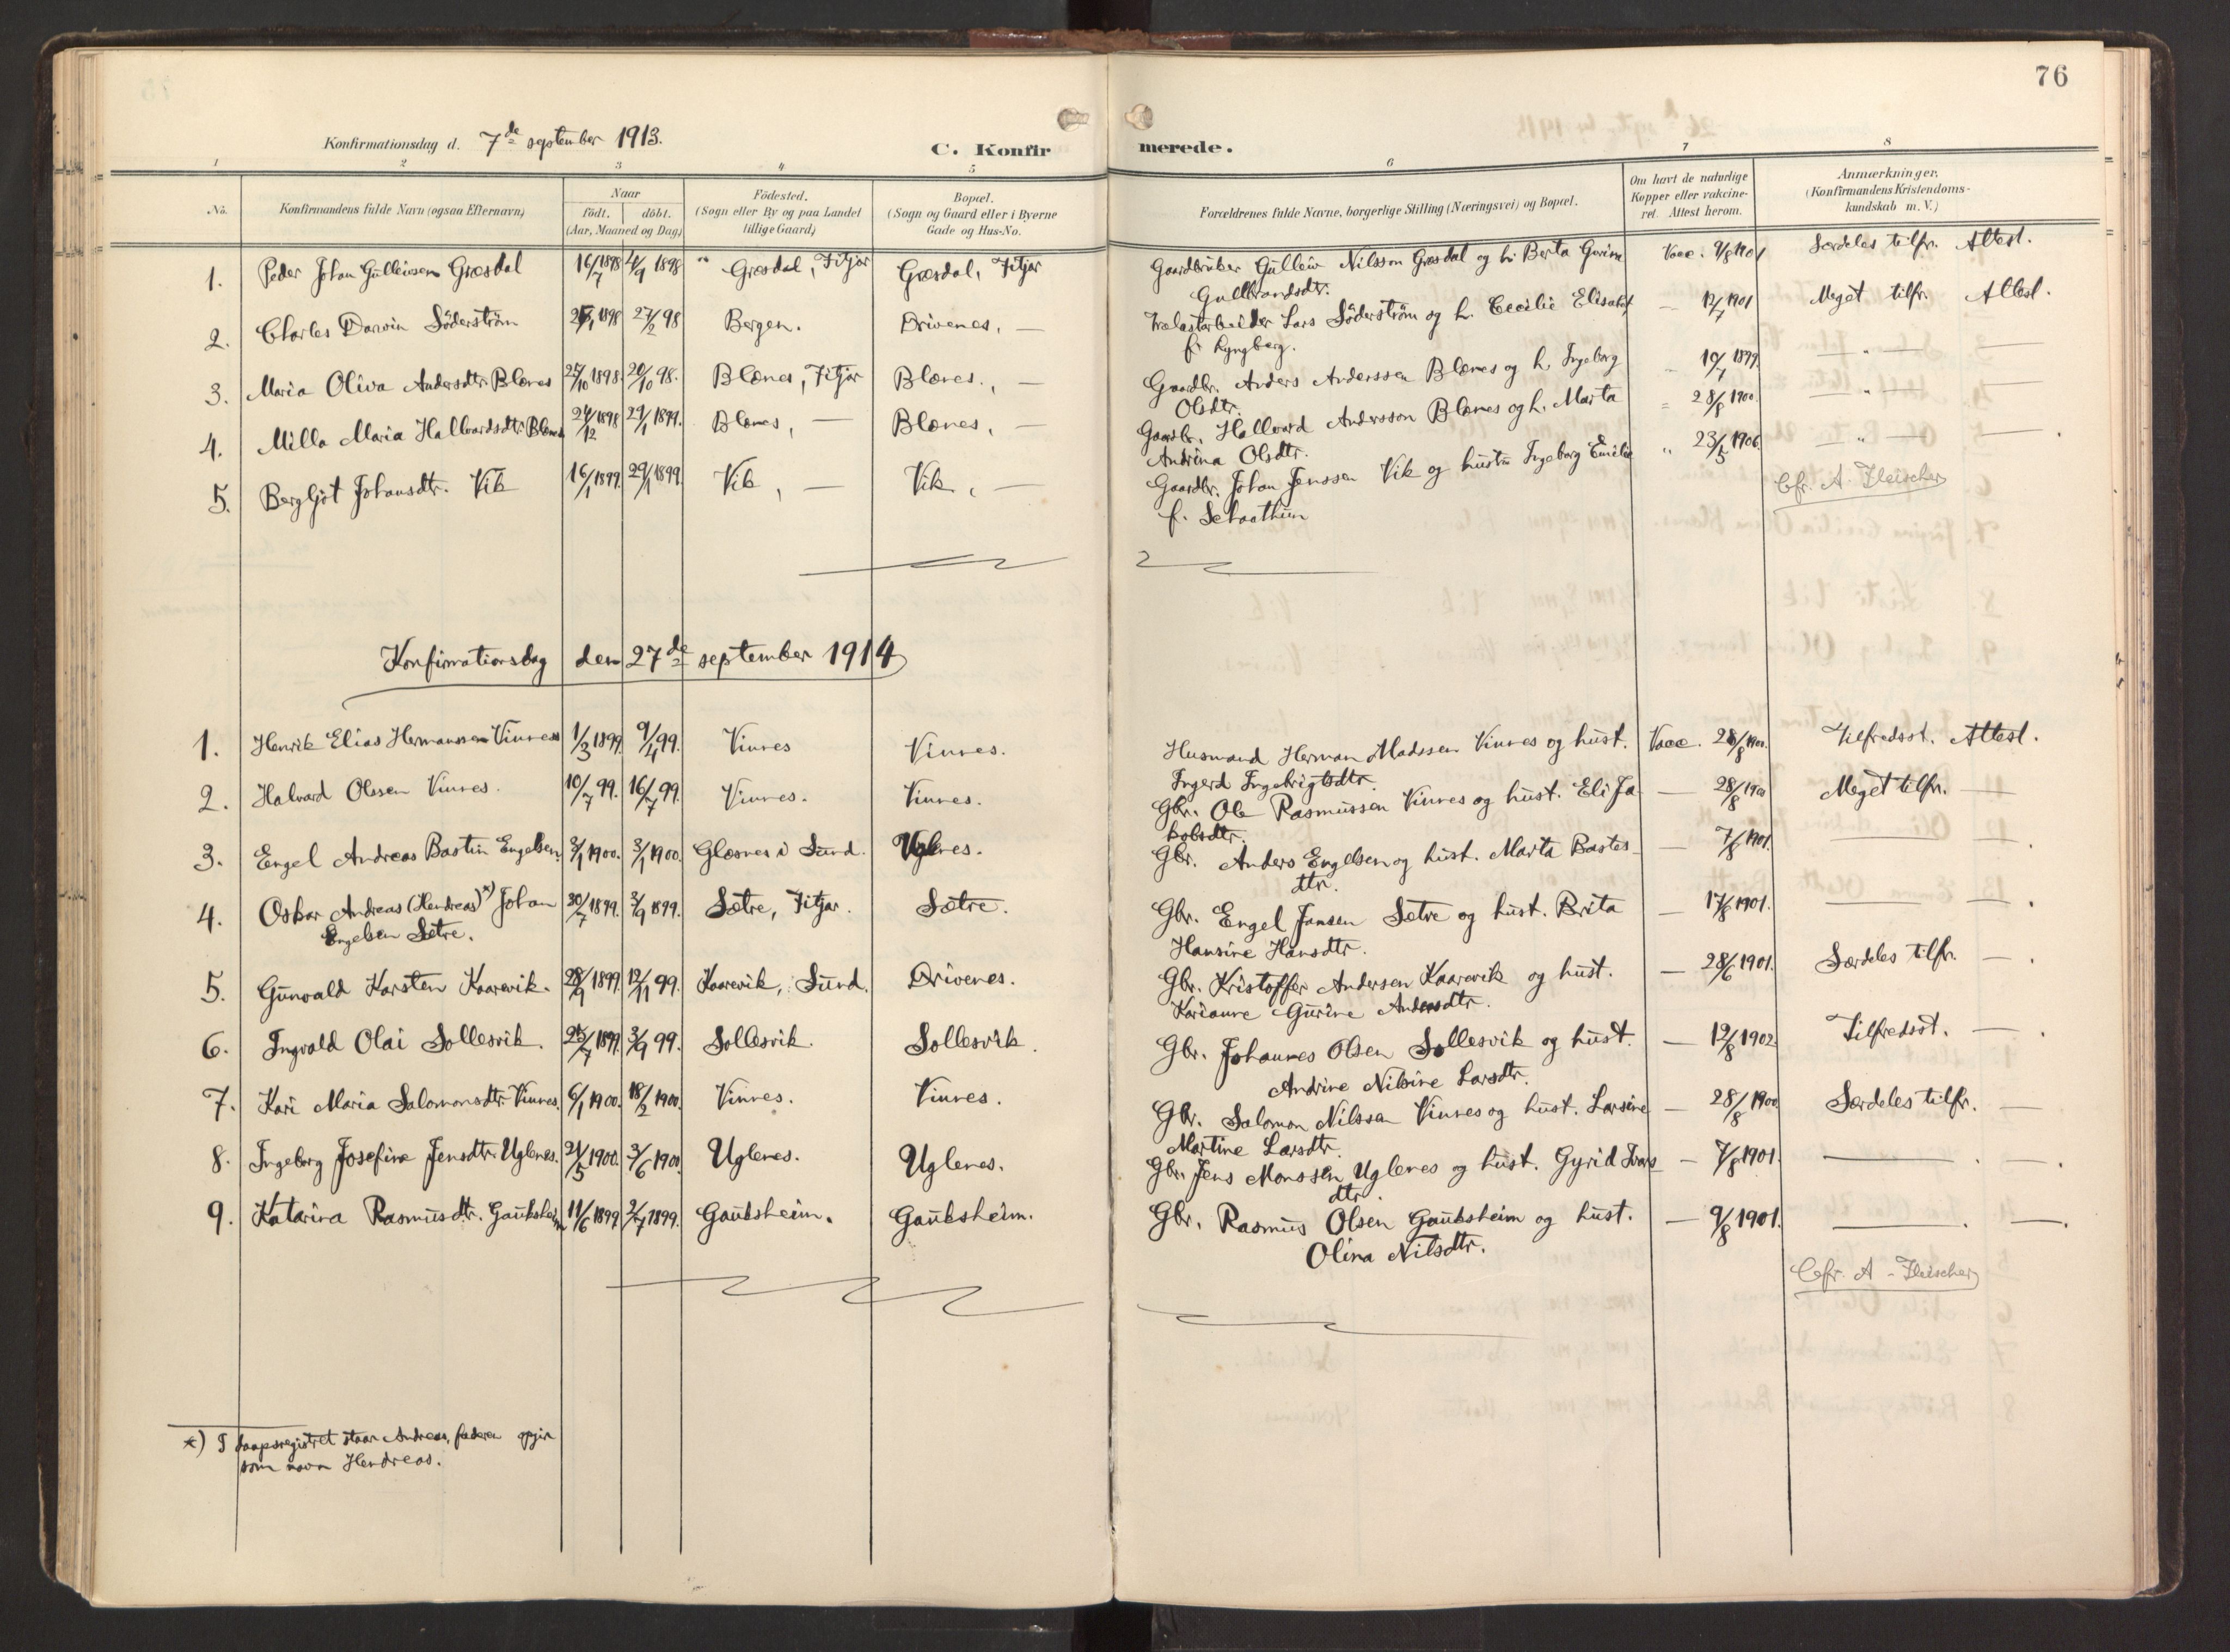 76
Konfirmationsdag d. 7de september 1913.
C. Konfirmerede.
1 2 3 4 5 6 7 8
No.
Konfirmandens fulde Navn (ogsaa Efternavn)
Naar
födt. döbt.
(Aar, Maaned og Dag)
Födested.
(Sogn eller By og paa Landet
tillige Gaard)
Bopæl.
(Sogn og Gaard eller i Byerne
Gade og Hus-No.
Forældrenes fulde Navne, borgerlige Stilling (Næringsvei) og Bopæl.
Om havt de naturlige
Kopper eller vakcine-
ret. Attest herom.
Anmærkninger.
(Konfirmandens Kristendoms-
kundskab m. V.)
1. Peder Johan Gulleivsen Græsdal 16/7 1898 4/9 1898 Græsdal, Fitjar Græsdal, Fitjar Gaardbruker Gulleiv Nilsson Græsdal og h. Berta Gurine Vacc. 9/8 1901 Særdeles tilfr. Attest.
Gullbrandsdtr.
2. Charles Darwin Söderström 1898 27/2 98 Bergen. Drivenes, — Trælastarbeider Lars Söderström og h. Cecilie Elisabet — 12/7 1901 Meget tilfr. Attest.
f. Lyngberg.
3. Maria Oliva Andersdtr. Blænes 25/10 1898. 20/10 98. Blænes, Fitjar Blænes., — Gaardbr. Anders Anderssen Blænes og h. Ingeborg 19/7 1899. — " —
Olsdtr.
4. Milla Maria Hallvardsdtr. Blænes 24/12 1898 29/1 1899. Blænes, — Blænes, — Gaardbr. Hallvard Andersson Blænes og h. Marta 28/8 1900. — " —
Andrina Olsdtr.
5. Bergljot Johansdtr. Vik 16/1 1899. 29/1 1899. Vik, — Vik, — Gaardbr. Johan Jenssen Vik og hustru Ingeborg Emilie " 23/5 1906. — " —
f. Schaathun
Cfr. A. Fleischer
Konfirmationsdag den 27de september 1914
1. Henrik Elias Hermanssen Vinnes 1/3 1899. 9/4 99. Vinnes Vinnes. Husmand Herman Madssen Vinnes og hust. Vacc. 28/8 1900. Tilfredsst. Attest.
Ingerd Ingebrigtsdtr.
2. Halvard Olssen Vinnes. 10/7 99. 16/7 99. Vinnes. Vinnes. Gbr. Ole Rasmussen Vinnes og hust. Eli Ja — 28/8 1900 Meget tilfr. —
kobsdtr.
3. Engel Andreas Bastin Engelsen. 3/1 1900. 3/1 1900. Glæsnes i Sund. Uglenes. Gbr. Anders Engelsen og hust. Marta Bastes- — 7/8 1901. — .
dtr.
4. Oskar Andreas (Hendreas)*) Johan 30/7 1899. 3/9 1899. Sætre, Fitjar. Sætre. Gbr. Engel Jansen Sætre og hust. Brita — 17/8 1901. — — .
Engelsen Sætre. Hansine Hansdtr.
5. Gunvald Karsten Kaarevik. 28/9 1899. 12/11 99. Kaarevik, Sund. Drivenes. Gbr. Kristoffer Andersen Kaarevik og hust. — 28/6 1901. Særdeles tilfr. — .
Karianne Gurine Andersdtr.
6. Ingvald Olai Sollesvik. 25/7 1899. 3/9 99. Sollesvik. Sollesvik. Gbr. Johannes Olsen Sollesvik og hust. — 12/8 1902. Tilfredsst. — .
Andrine Nilsine Larsdtr.
7. Kari Maria Salomonsdtr. Vinnes. 6/1 1900. 18/2 1900. Vinnes. Vinnes. Gbr. Salomon Nilssen Vinnes og hust. Larsine — 28/8 1900. Særdeles tilfr. —
Martine Larsdtr.
8. Ingeborg Josefine Jensdtr. Uglenes. 21/5 1900. 3/6 1900. Uglenes. Uglenes. Gbr. Jens Monssen Uglenes og hust. Gyrid Ivars — 7/8 1901. — . .
dtr.
9. Katarina Rasmusdtr. Gauksheim 11/6 1899. 2/7 1899. Gauksheim. Gauksheim. Gbr. Rasmus Olsen Gauksheim og hust. — 9/8 1901. — . — .
Olina Nilsdtr.
Cfr. A - Fleischer
*) I daapsregistret staar Andreas, faderen opgir
som navn Hendreas.